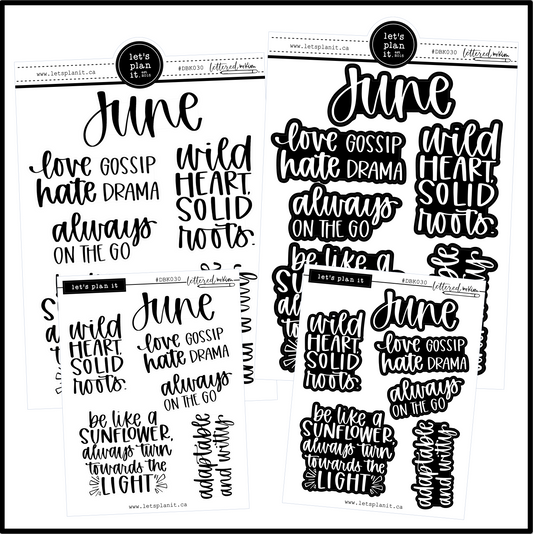 let's
plan
it.
EST. 2015
www.letsplanit.ca
#DBK030
lettered
June
love GOSSIP
hate DRAMA
wild
HEART,
SOLID
roots.
always
ON THE GO
let's
plan
it.
EST. 2015
www.letsplanit.ca
#DBK030
lettered
June
love GOSSIP
hate DRAMA
wild
HEART,
SOLID
roots.
always
ON THE GO
be like a
let's plan it
#DBK030
lettered
June
wild
HEART,
SOLID
roots.
love GOSSIP
hate DRAMA
always
ON THE GO
be like a
SUNFLOWER,
always turn
towards the
LIGHT
adaptable
and witty.
www.letsplanit.ca
let's plan it
#DBK030
lettered
June
wild
HEART,
SOLID
roots.
love GOSSIP
hate DRAMA
always
ON THE GO
be like a
SUNFLOWER,
always turn
towards the
LIGHT
adaptable
and witty.
www.letsplanit.ca